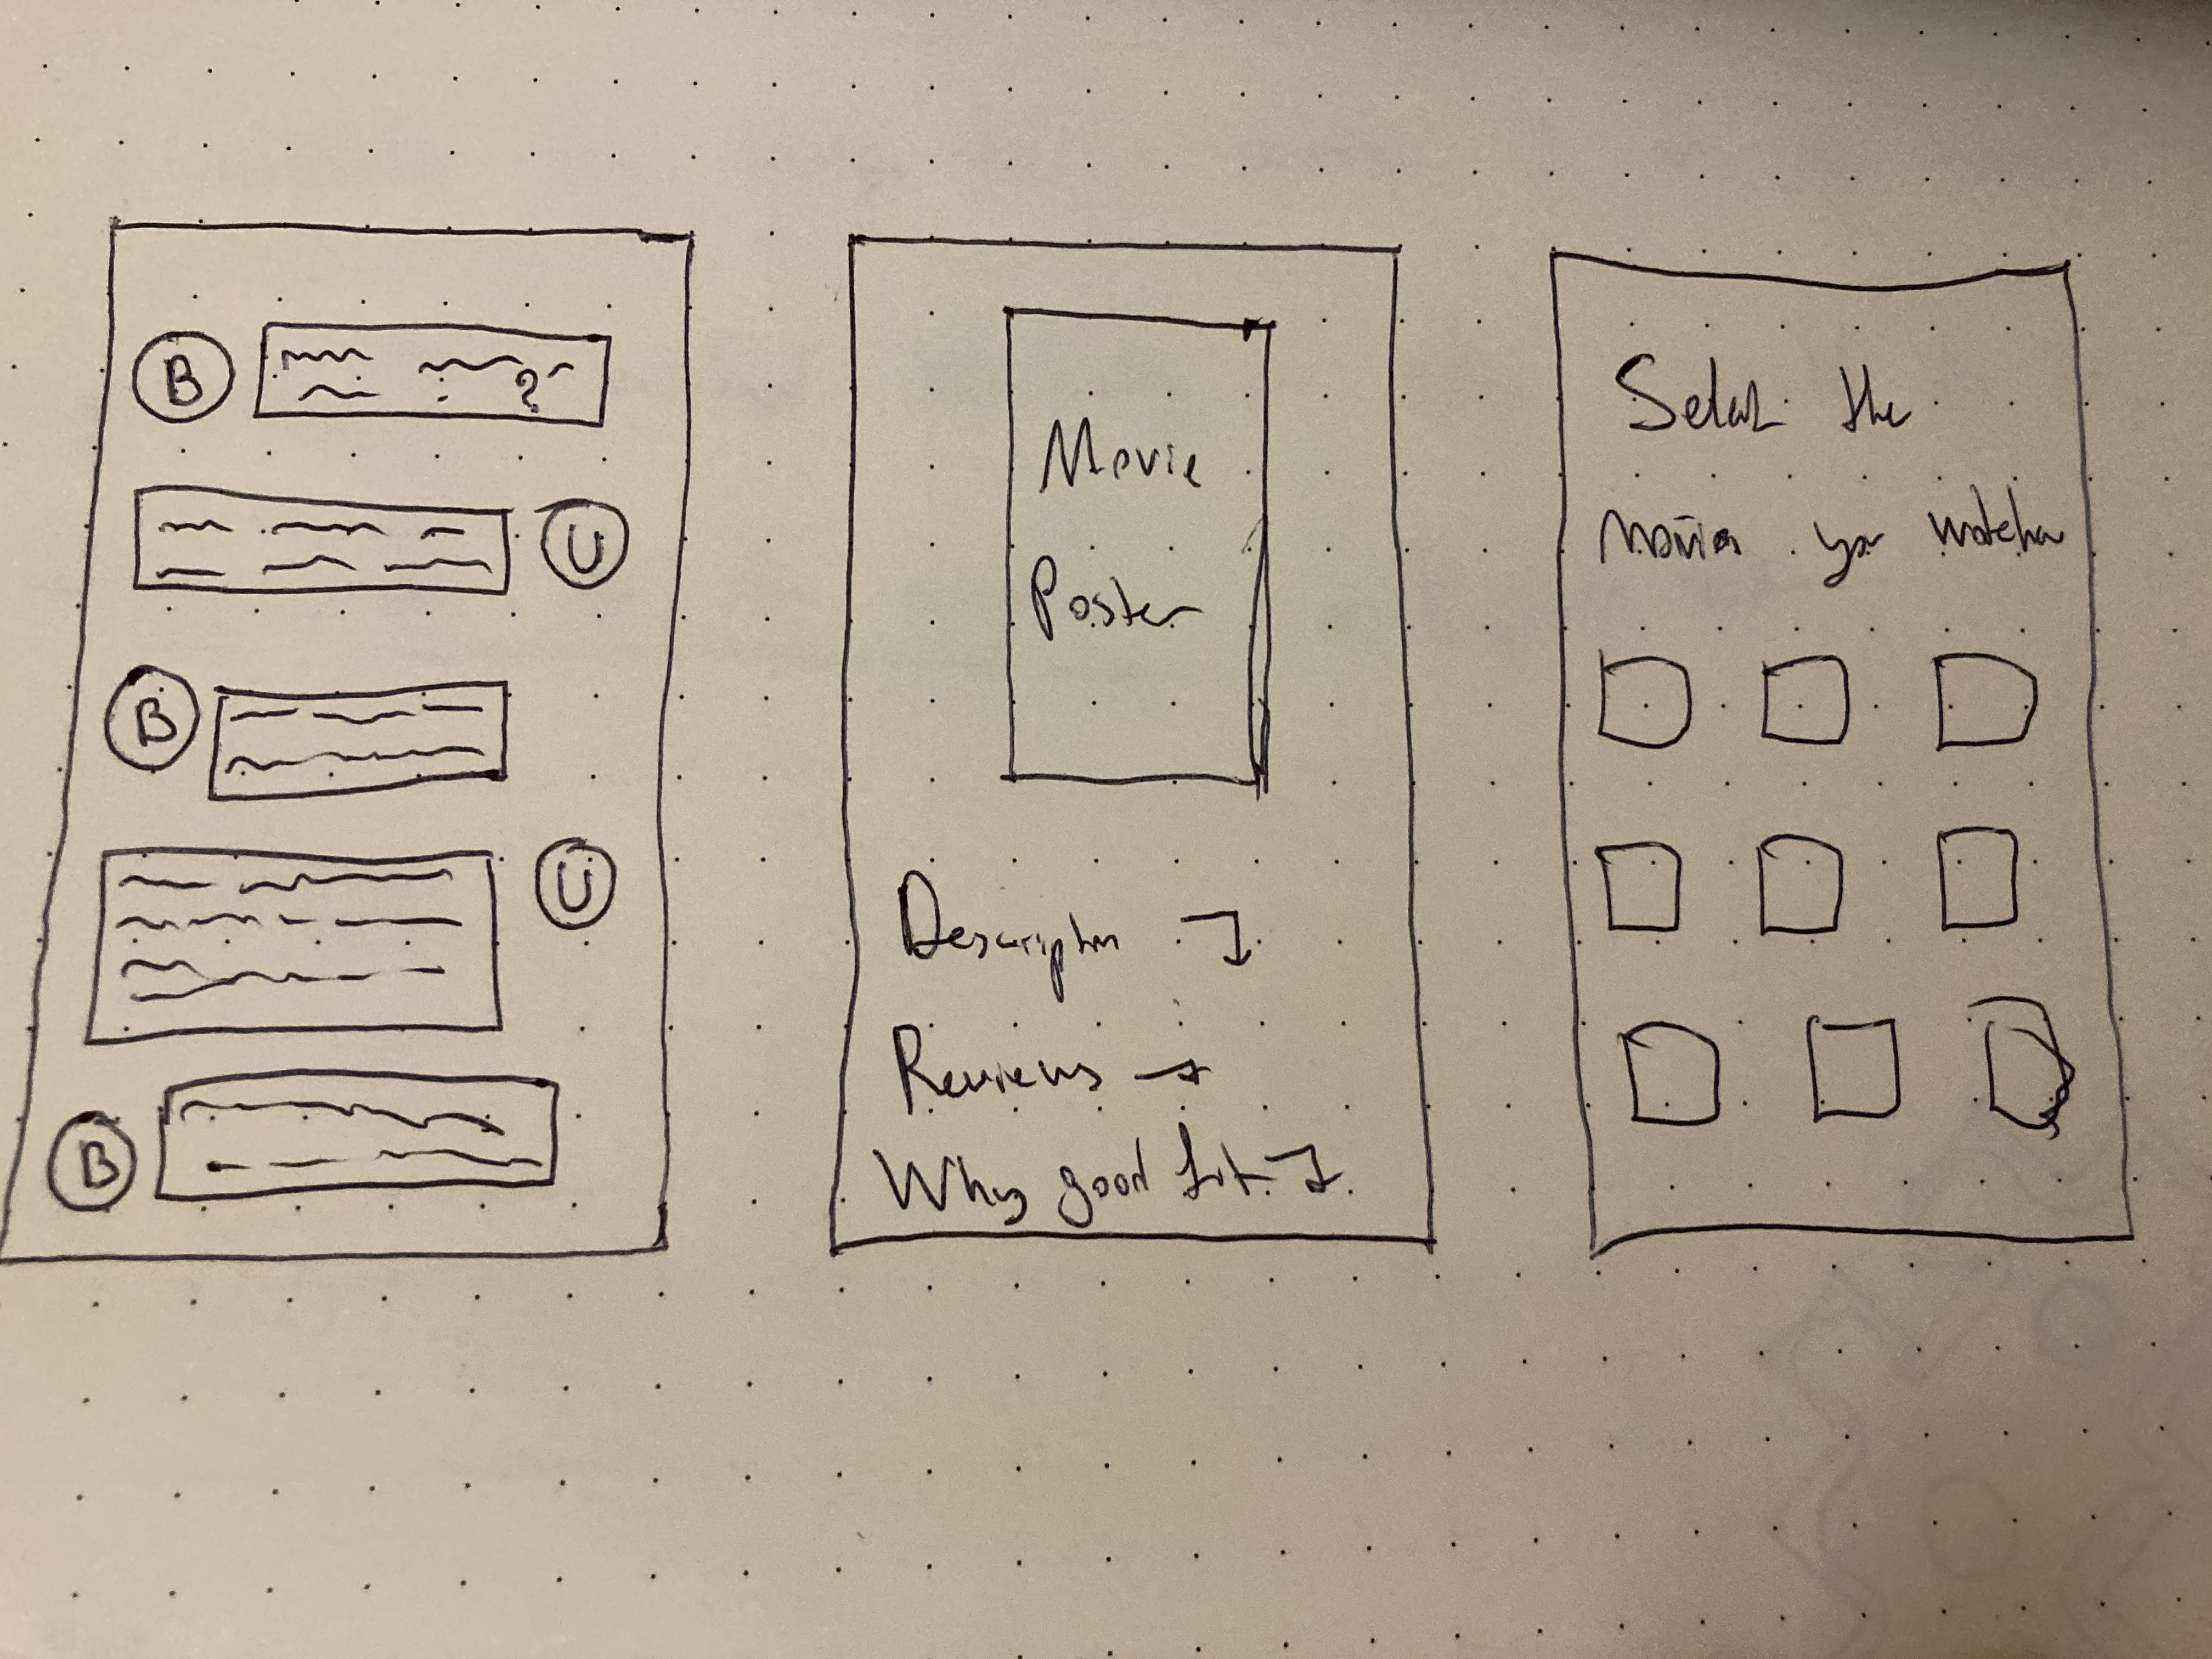 B
?
U
B
U
B
Movie
Poster
Description
Reviews →
Why good fit
Select the
Movies you watched